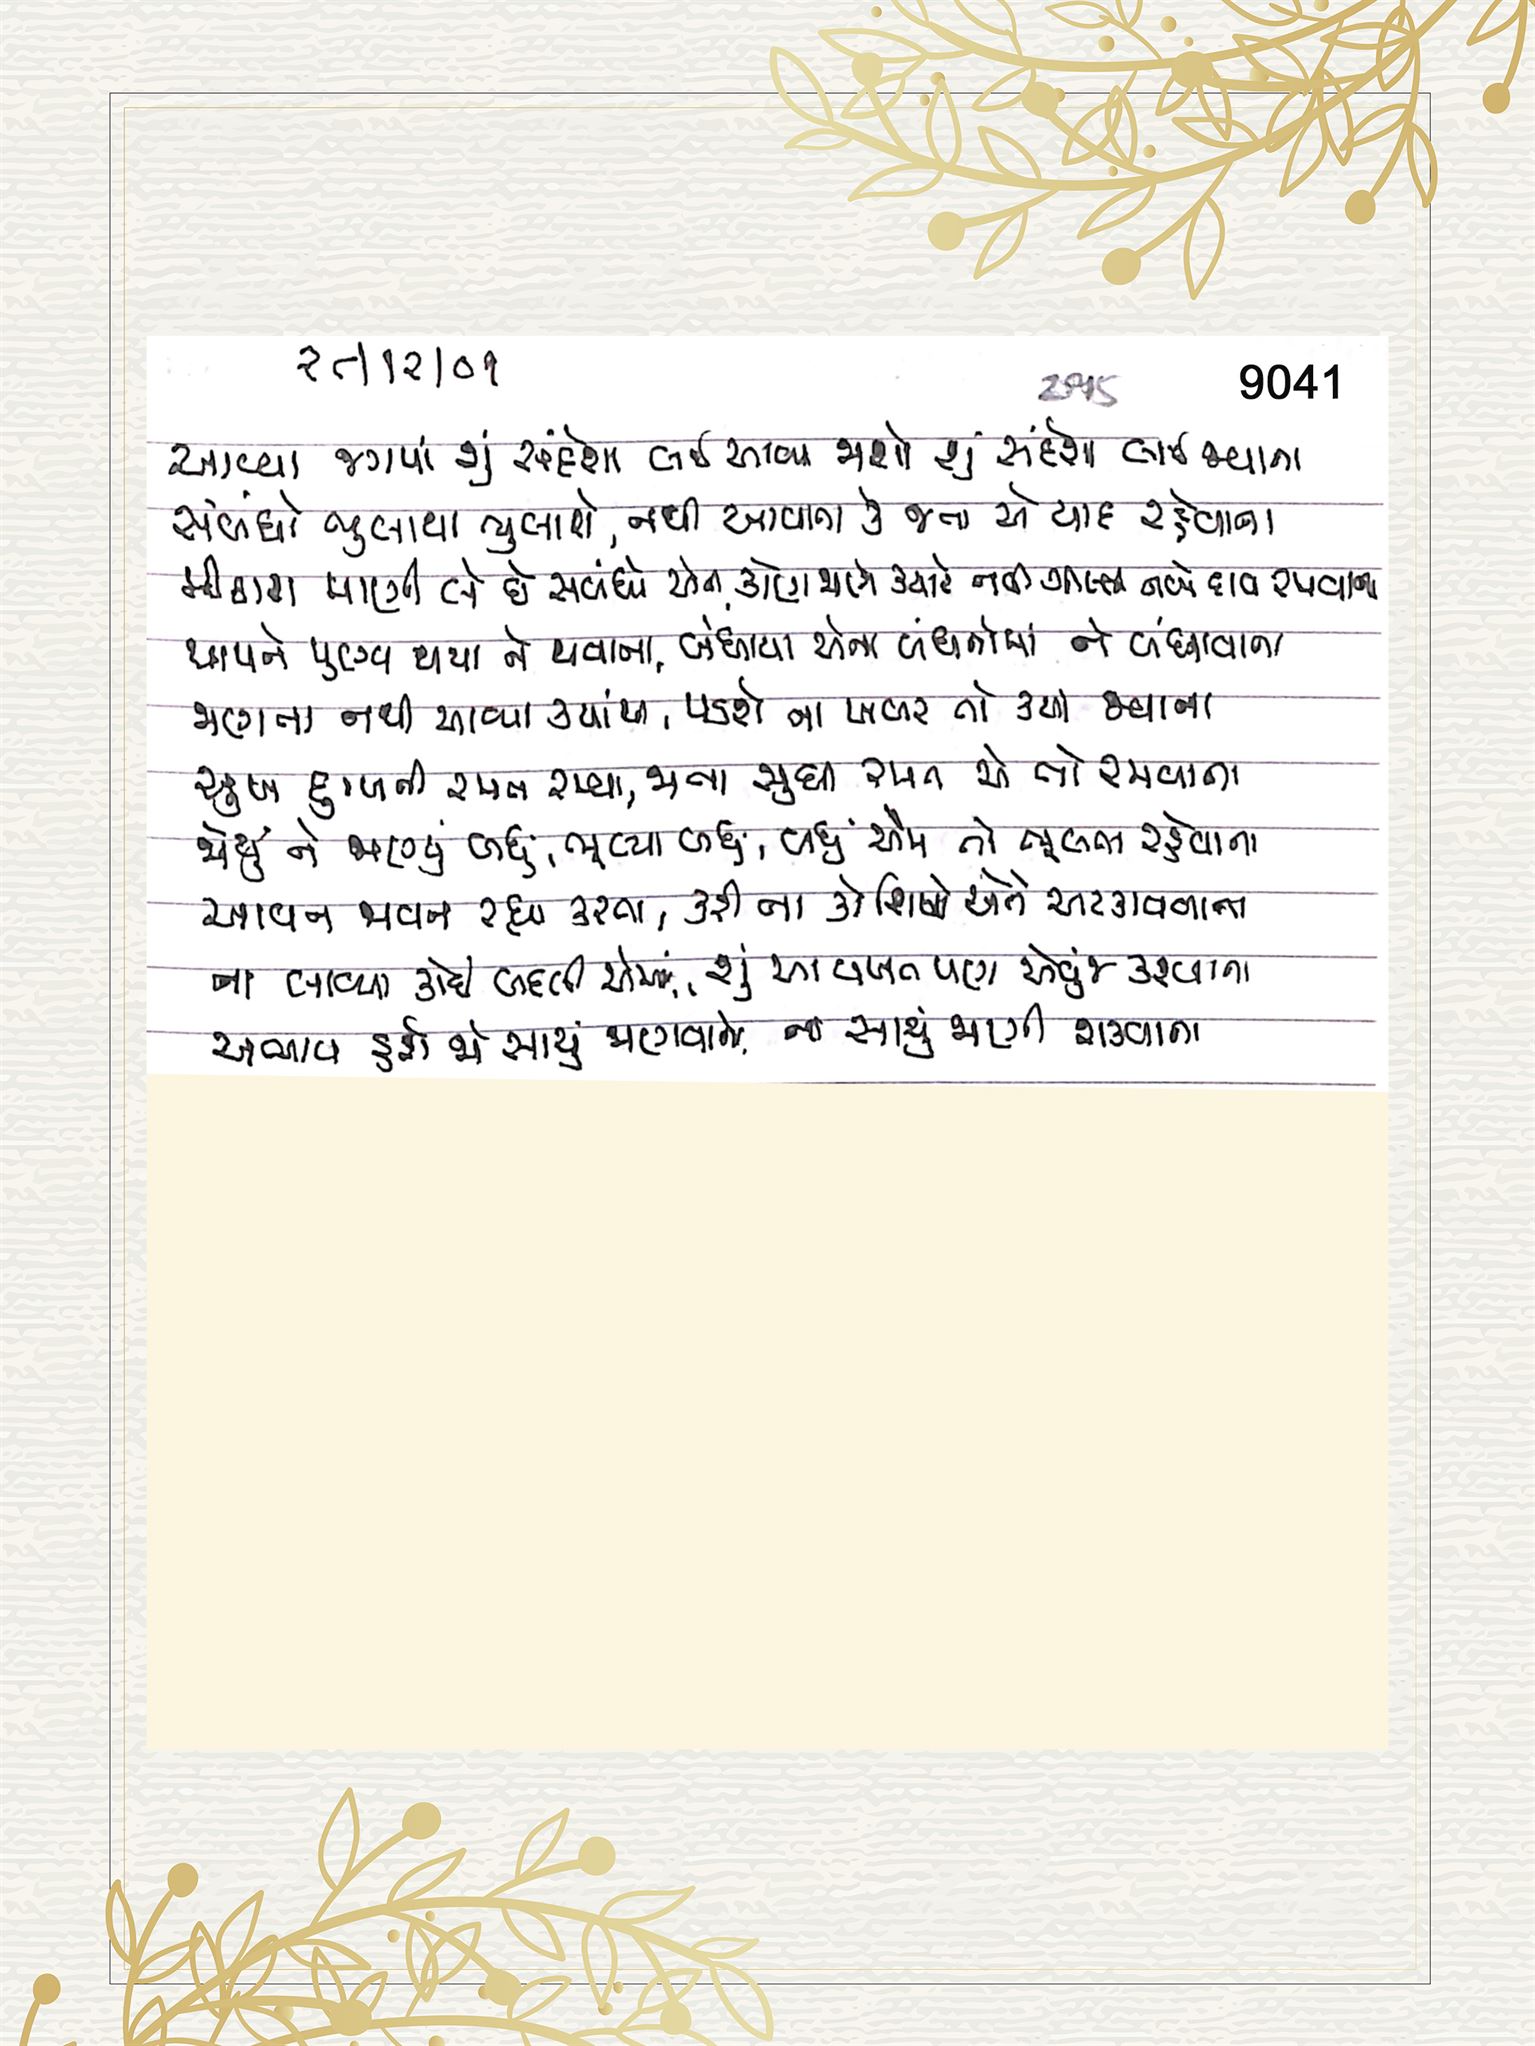 ૨૮/૧૨/૦૧
2945
9041
આવ્યા જગમાં શું સંદેશા લઈ આવ્યા જાશો શું સંદેશા લઈ જવાના
સંબંધો ભુલાયા ભુલાશે, નથી આવવાના કે જતા એ યાદ રહેવાના
મીઠાશ માણી લે છે સબંધો એના, કોણ જાણે ક્યારે નવી નવો દાવ રમવાના
પાપને પુણ્ય થયા ને થવાના, બંધાયા એના બંધનોમાં ને બંધાવાના
જાણતા નથી આવ્યા ક્યાંથી, પડશે ના ખબર તો ક્યાં જવાના
સુખ દુઃખની રમત રમ્યા, જતા સુધી રમત એ તો રમવાના
જોયું ને જાણ્યું બધું, ભૂલ્યા બધું, બધું એમ તો ભૂલતા રહેવાના
આવન જાવન રહ્યા કરતા, કરી ના કોશિશો એને અટકાવવાના
ના લાવ્યા કોઈ બદલી એમાં, શું આ વખત પણ એવુંજ કરવાના
અભાવ હશે જો સાચું જાણવાનો, ના સાચું જાણી શકવાના